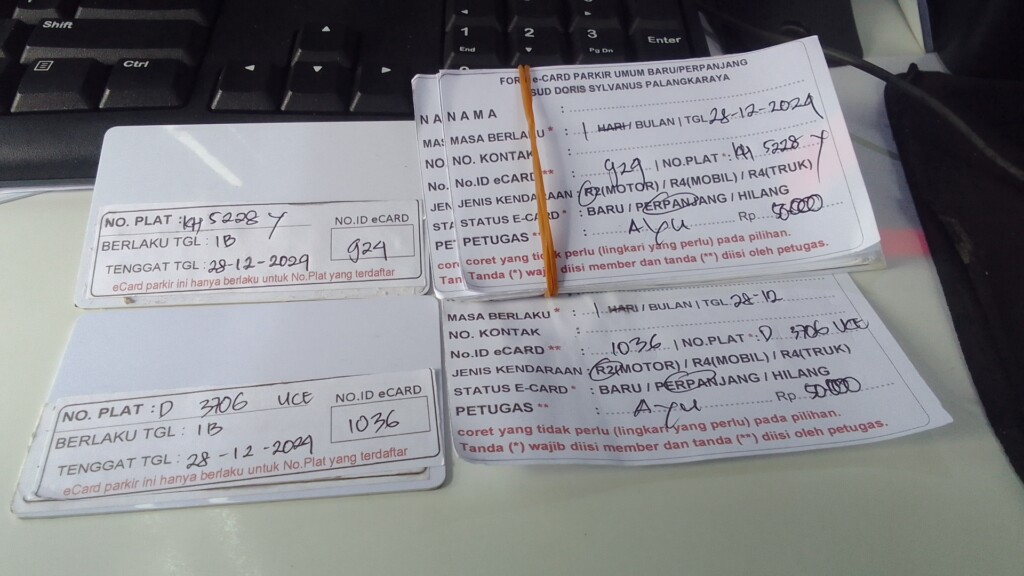 Shift
Ctrl
1
End
2
3
Pg Dn
Enter
FOR e-CARD PARKIR UMUM BARU/PERPANJANG
SUD DORIS SYLVANUS PALANGKARAYA
NA NAMA :
MA MASA BERLAKU * : 1 HARI / BULAN | TGL 28-12-2029
NO NO. KONTAK :
No. No.ID eCARD ** : 929 | NO.PLAT * : KH 5228 Y
JEN JENIS KENDARAAN : R2(MOTOR) / R4(MOBIL) / R4(TRUK)
STA STATUS E-CARD * : BARU / PERPANJANG / HILANG
PE PETUGAS ** : Ayu Rp 50.000
cor coret yang tidak perlu (lingkari yang perlu) pada pilihan.
Tan Tanda (*) wajib diisi member dan tanda (**) diisi oleh petugas.
NO. PLAT : KH 5228 Y
NO.ID eCARD
BERLAKU TGL : 1B
929
TENGGAT TGL : 28-12-2029
eCard parkir ini hanya berlaku untuk No.Plat yang terdaftar
MASA BERLAKU * : 1 HARI / BULAN | TGL 28-12
NO. KONTAK :
No.ID eCARD ** : 1036 | NO.PLAT * : D 3706 UCE
JENIS KENDARAAN : R2(MOTOR) / R4(MOBIL) / R4(TRUK)
STATUS E-CARD * : BARU / PERPANJANG / HILANG
PETUGAS ** : Ayu Rp 50.000
coret yang tidak perlu (lingkari yang perlu) pada pilihan.
Tanda (*) wajib diisi member dan tanda (**) diisi oleh petugas.
NO. PLAT : D 3706 UCE
NO.ID eCARD
BERLAKU TGL : 1B
1036
TENGGAT TGL : 28-12-2029
eCard parkir ini hanya berlaku untuk No.Plat yang terdaftar